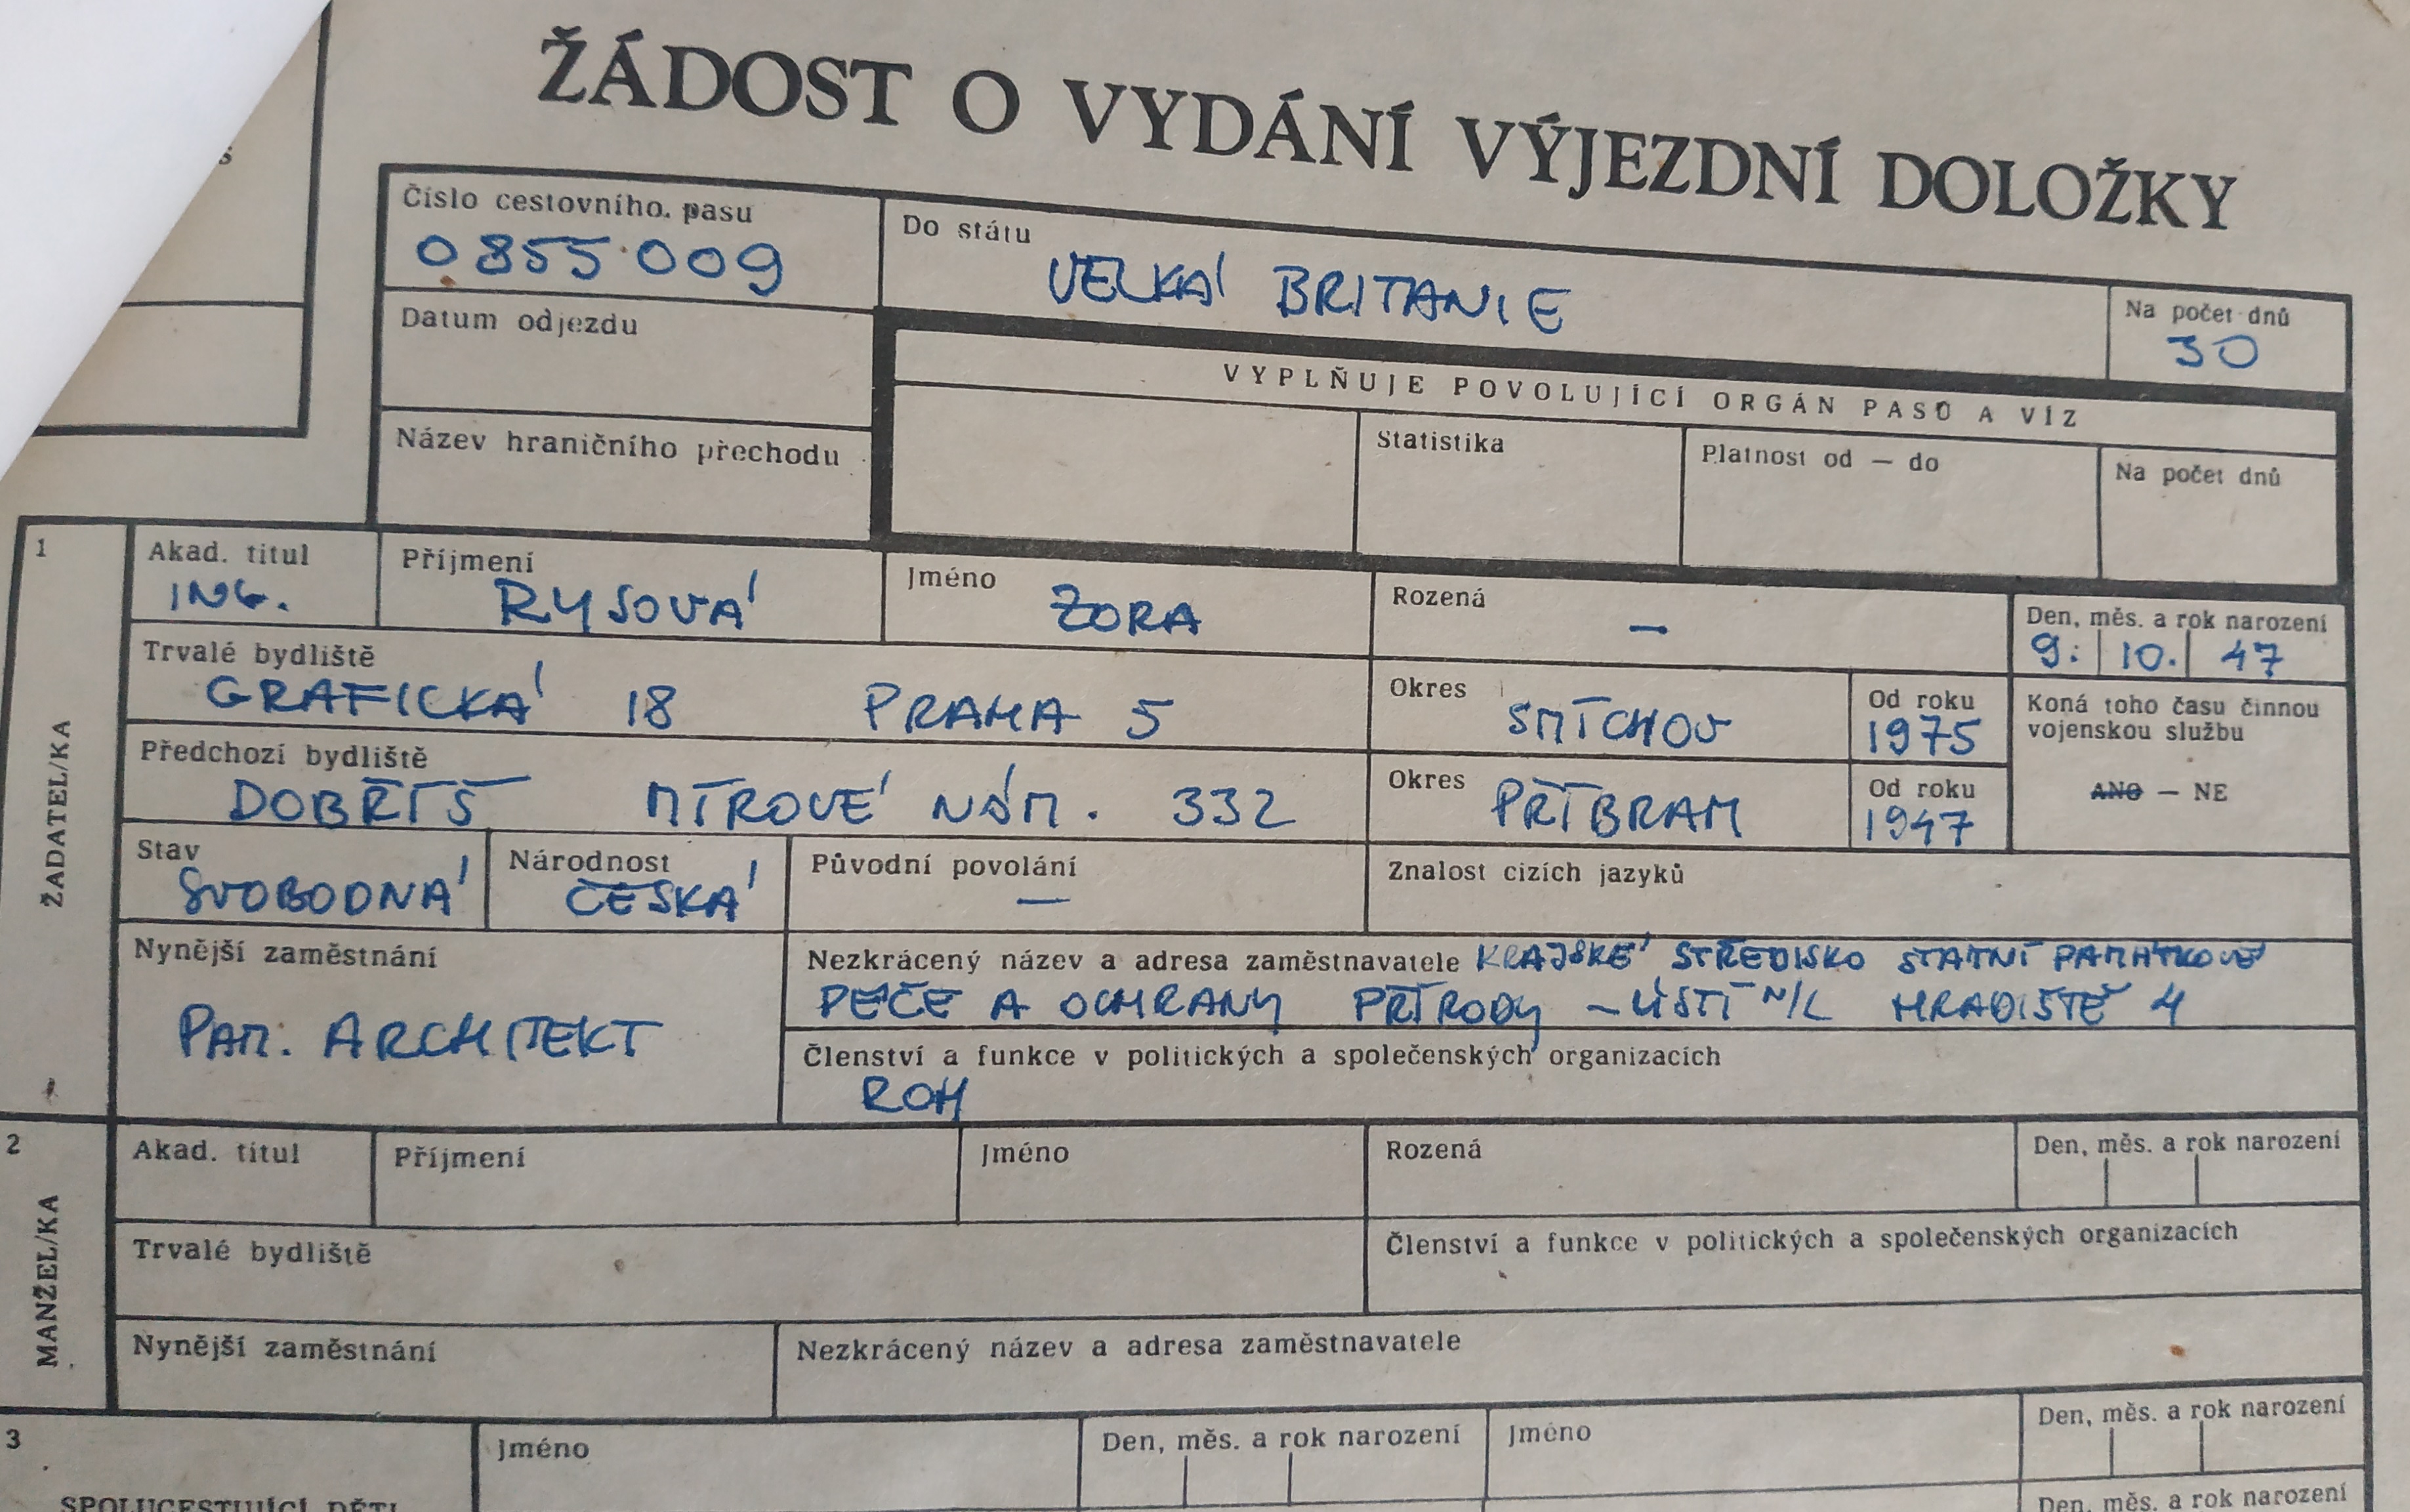 ŽÁDOST O VYDÁNÍ VÝJEZDNÍ DOLOŽKY
Číslo cestovního pasu
0855 009
Do státu
VELKÁ BRITANIE
Na počet dnů
30
Datum odjezdu
VYPLŇUJE POVOLUJÍCÍ ORGÁN PASŮ A VÍZ
Název hraničního přechodu
Statistika
Platnost od — do
Na počet dnů
1
ŽADATEL/KA
Akad. titul
ING.
Příjmení
RYSOVÁ
Jméno
ZORA
Rozená
—
Den, měs. a rok narození
9. 10. 47
Trvalé bydliště
GRAFICKÁ 18 PRAHA 5
Okres
SMÍCHOV
Od roku
1975
Koná toho času činnou
vojenskou službu
ANO — NE
Předchozí bydliště
DOBŘÍŠ MÍROVÉ NÁM. 332
Okres
PŘÍBRAM
Od roku
1947
Stav
SVOBODNÁ
Národnost
ČESKÁ
Původní povolání
—
Znalost cizích jazyků
Nynější zaměstnání
PAM. ARCHITEKT
Nezkrácený název a adresa zaměstnavatele KRAJSKÉ STŘEDISKO STÁTNÍ PAMÁTKOVÉ
PÉČE A OCHRANY PŘÍRODY – ÚSTÍ N/L HRADIŠTĚ 4
Členství a funkce v politických a společenských organizacích
ROH
2
MANŽEL/KA
Akad. titul
Příjmení
Jméno
Rozená
Den, měs. a rok narození
Trvalé bydliště
Členství a funkce v politických a společenských organizacích
Nynější zaměstnání
Nezkrácený název a adresa zaměstnavatele
3
SPOLUCESTUJÍCÍ DĚTI
Jméno
Den, měs. a rok narození
Jméno
Den, měs. a rok narození
Den, měs. a rok narození